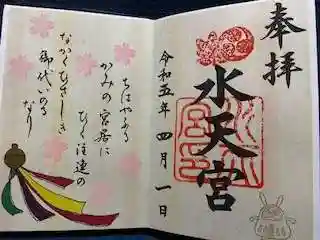 奉拝
水天宮
令和五年 四月 一日
ちはやふる
かみの宮居に
ひく注連の
なかくひさしき
御代いのるなり